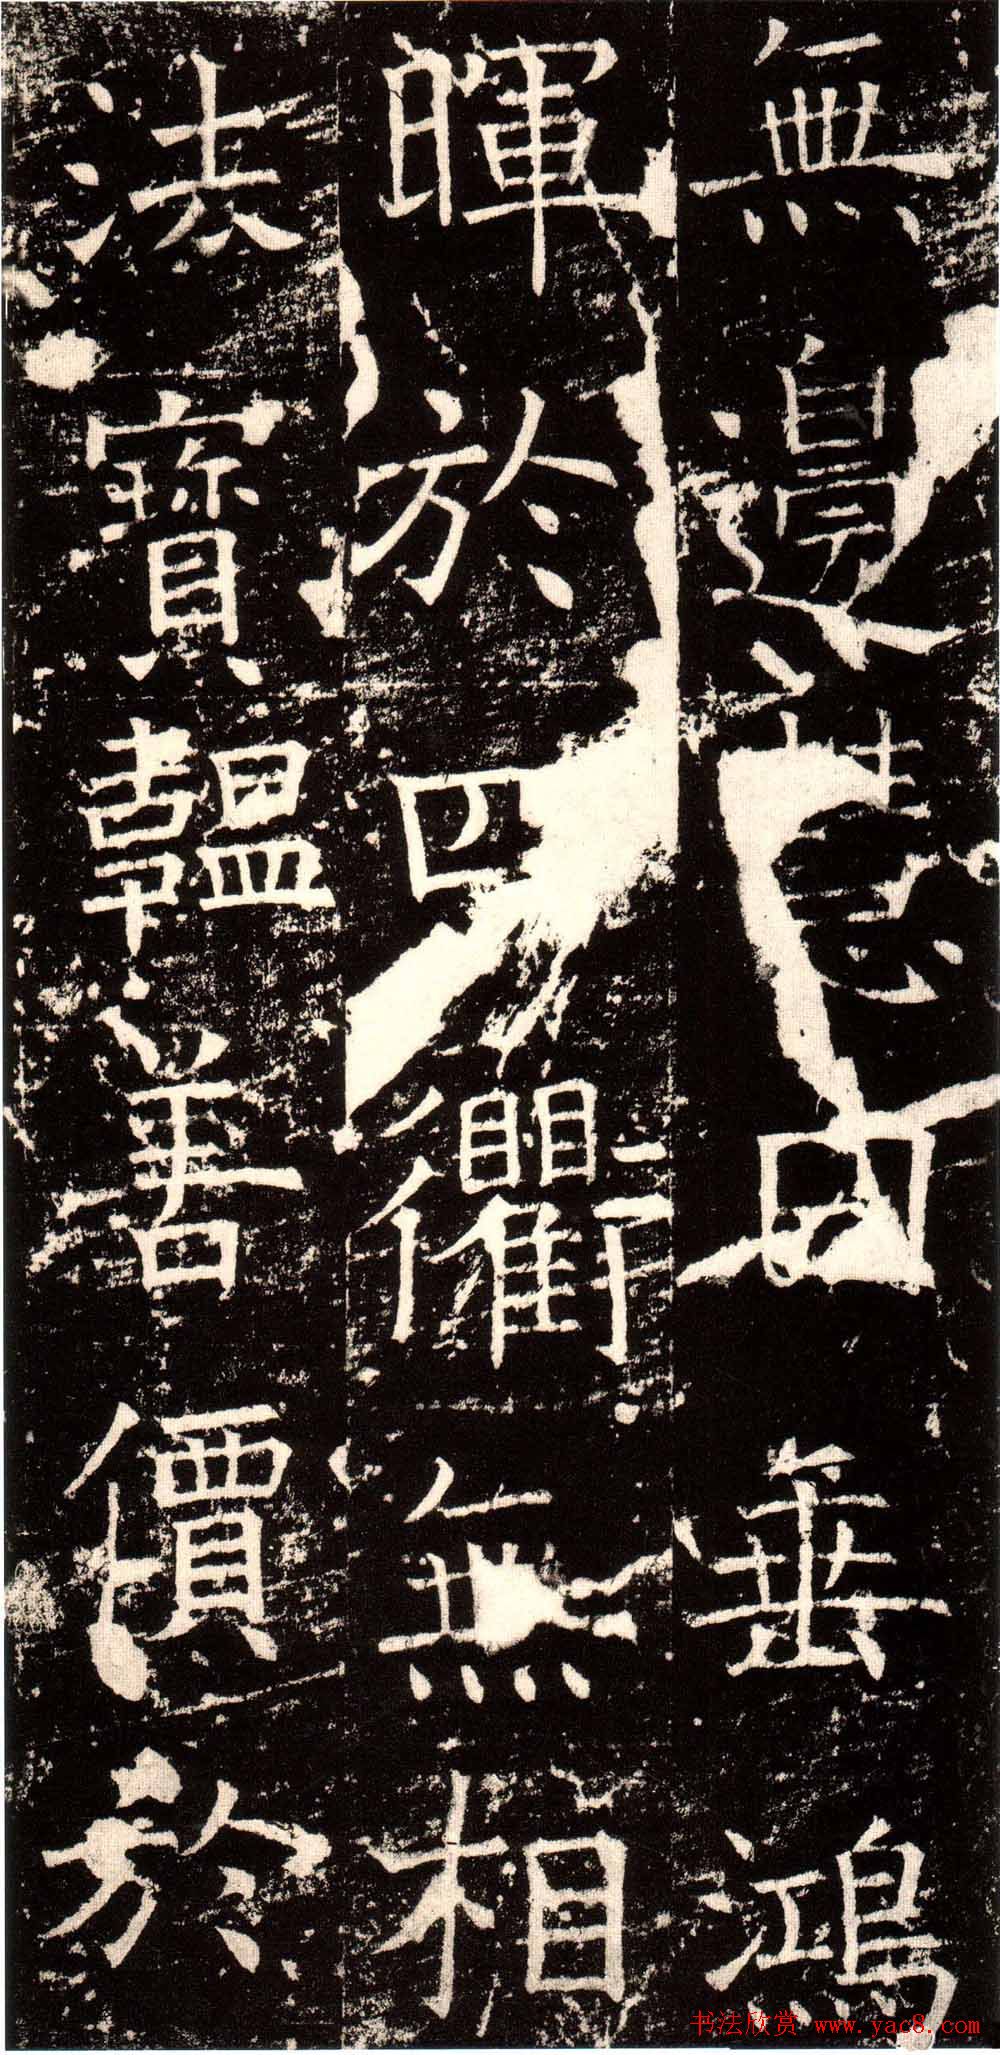 無邊慧日垂鴻
暉於四衢無相
法寶韞善價於
书法欣赏 www.yac8.com